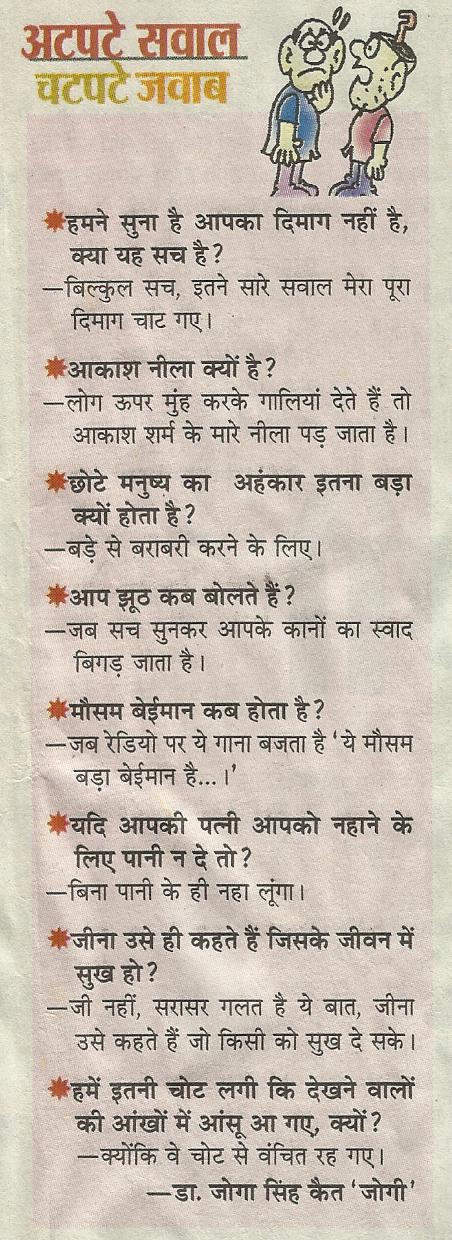 अटपटे सवाल
चटपटे जवाब
हमने सुना है आपका दिमाग नहीं है,
क्या यह सच है?
—बिल्कुल सच, इतने सारे सवाल मेरा पूरा
दिमाग चाट गए।
आकाश नीला क्यों है?
—लोग ऊपर मुंह करके गालियां देते हैं तो
आकाश शर्म के मारे नीला पड़ जाता है।
छोटे मनुष्य का अहंकार इतना बड़ा
क्यों होता है?
—बड़े से बराबरी करने के लिए।
आप झूठ कब बोलते हैं?
—जब सच सुनकर आपके कानों का स्वाद
बिगड़ जाता है।
मौसम बेईमान कब होता है?
—जब रेडियो पर ये गाना बजता है ‘ये मौसम
बड़ा बेईमान है...।’
यदि आपकी पत्नी आपको नहाने के
लिए पानी न दे तो?
—बिना पानी के ही नहा लूंगा।
जीना उसे ही कहते हैं जिसके जीवन में
सुख हो?
—जी नहीं, सरासर गलत है ये बात, जीना
उसे कहते हैं जो किसी को सुख दे सके।
हमें इतनी चोट लगी कि देखने वालों
की आंखों में आंसू आ गए, क्यों?
—क्योंकि वे चोट से वंचित रह गए।
—डा. जोगा सिंह कैत ‘जोगी’